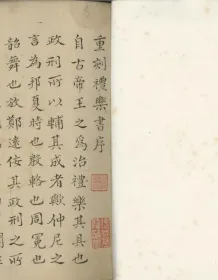 重刻禮樂書序
自古帝王之為治禮樂其具也
政刑所以輔其成者歟仲尼之
言為邦夏時也殷輅也周冕也
韶舞也放鄭遠佞其政刑之所